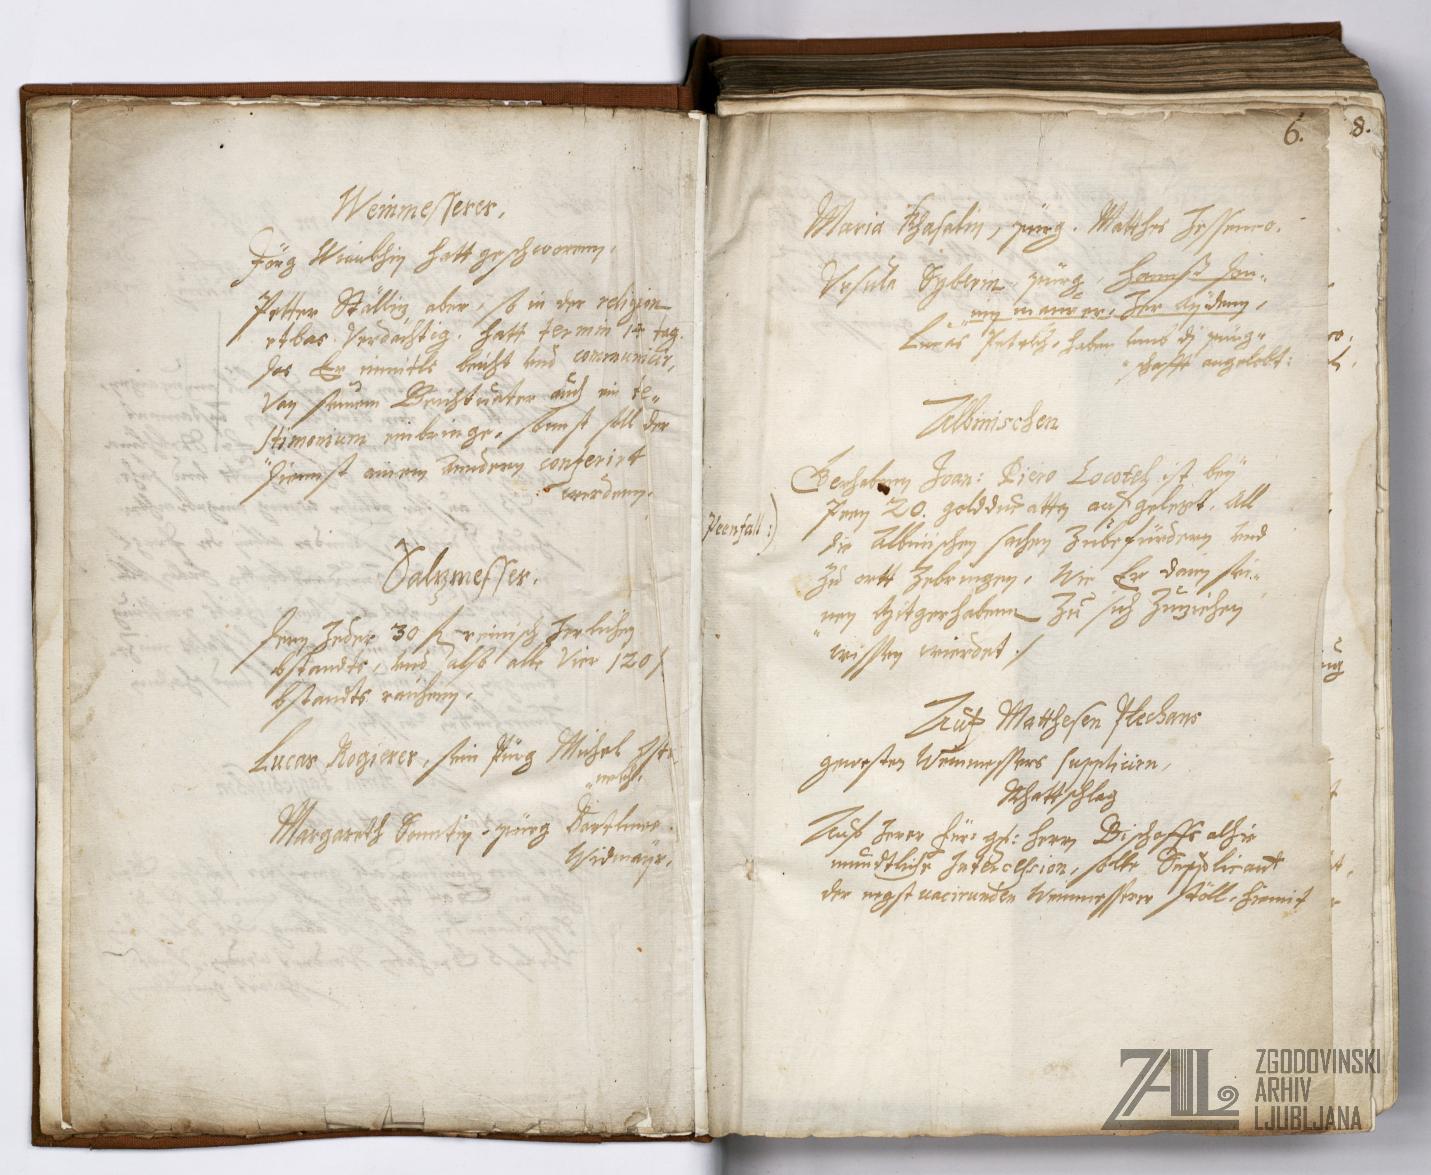 Weinmesserer.
Jörg hatt geschworenn.
Petter aber, so in der religion
etbas Verdächtig. hatt termin 14 tag.
das Er inmitls beicht und communicir,
Von seinem Beichtvater auch ein te„
stimonium einbringe. sonnst soll der
„diennst ainem andern conferirt
werdenn.
Salzmesser.
Jeder 30 f reinisch Jerlichen
bstandts, und alle Vier 120 f
bstandts raichenn.
Lucas Rogierer, sein Pürg Michel
Margareth pürg Bartlmee
Widmayr.
6. 8.
Maria Khasalin, pürg. Matthes
Ursula pürg,
Lucas haben umb di pürg„
„schafft angelobt:
Albinischen
Peenfall:)
Gerhabenn Joan: Piero Locatel ist beÿ
Peen 20. goldducattn auferlegt. All
die Albinischen sachen Zübefürdern und
Zü ortt Zebringen, Wie Er dann sei„
nen Mitgerhabenn Zü sich Züziehen
wissen wierdet./
Auf Matthesen Plechans
gewesten Weinmessers suppliciern,
Rhattschlag
Auf Jerer Für: gn: herrn Bischoffs alhie
mundtliche Intercession, solle Supplicant
der negst vacirunden Weinmesserer stöll, hiemit
ZAL ZGODOVINSKI
ARHIV
LJUBLJANA